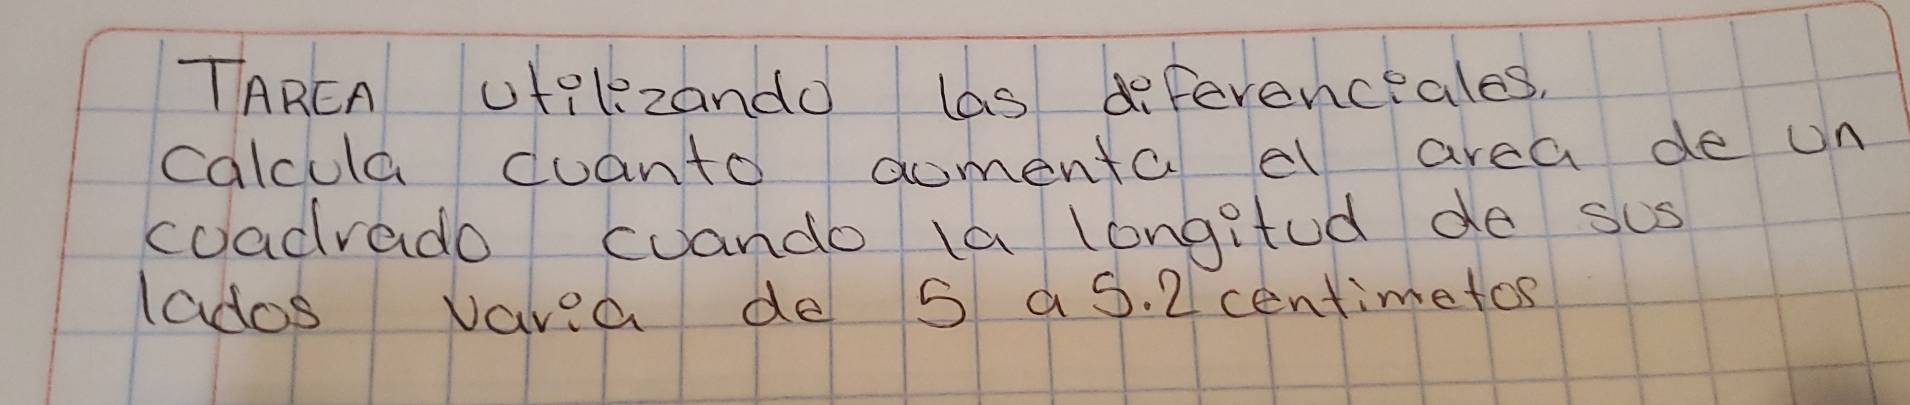 TAREA utilizando las diferenciales.
calcula cuanto aumenta el area de un
cuadrado cuando la longitud de sus
lados varia de 5 a 5.2 centimetos